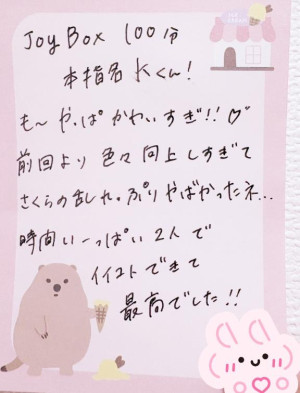 Joy Box 100分
本指名Kくん!
も〜やっぱかわいすぎ!!♡
前回より色々向上しすぎて
さくらの乱れっぷりやばかったネ...
時間いーっぱい2人で
イイコトできて
最高でした!!